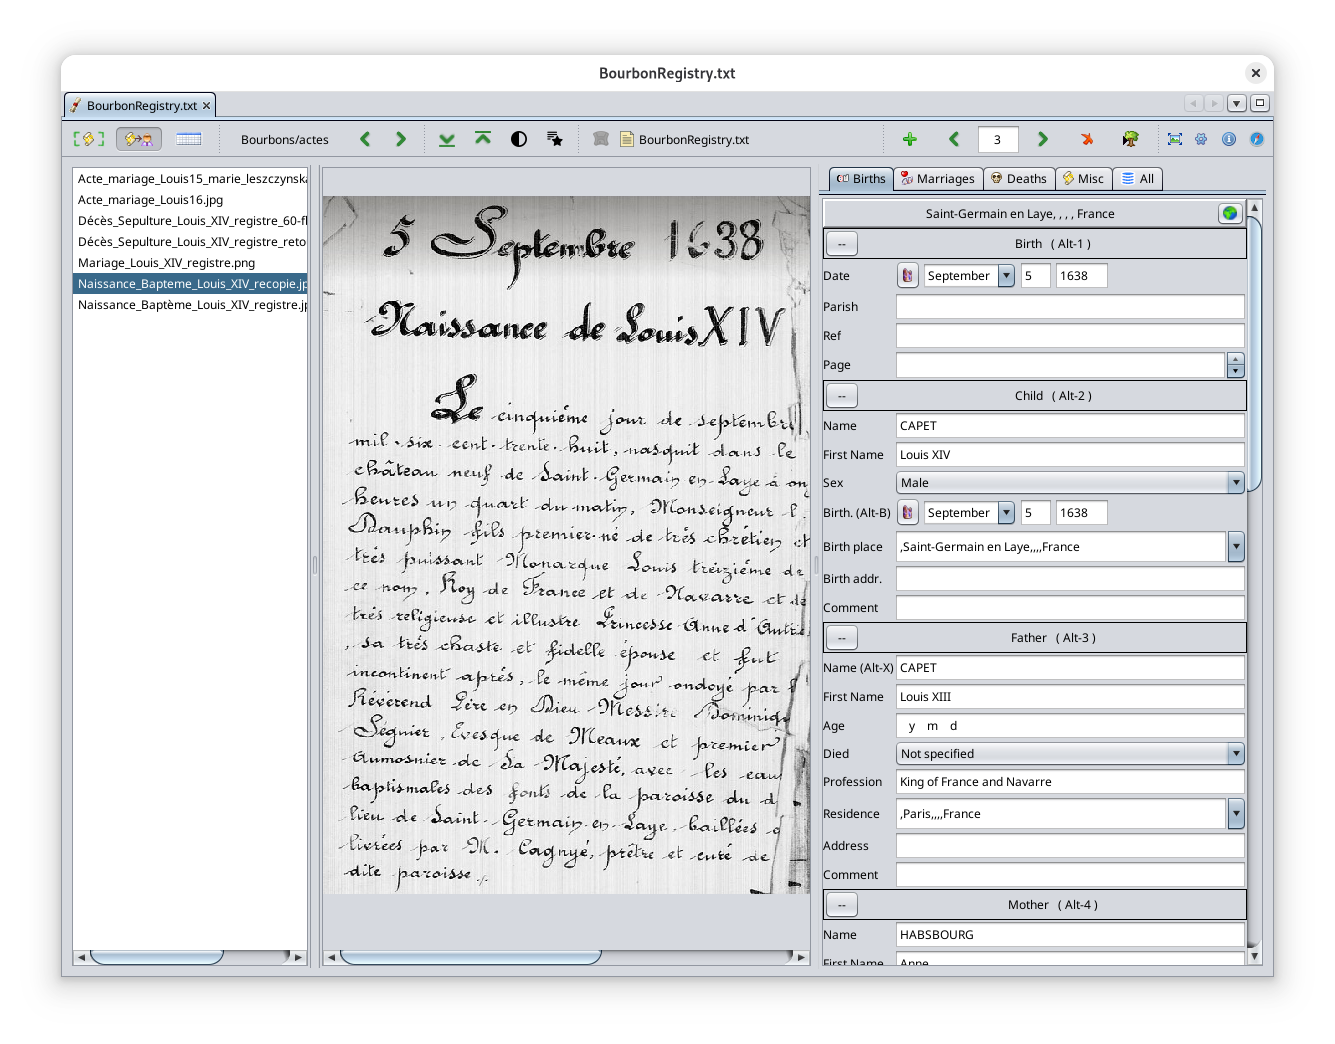 BourbonRegistry.txt
BourbonRegistry.txt
Bourbons/actes
BourbonRegistry.txt
3
Acte_mariage_Louis15_marie_leszczynska
Acte_mariage_Louis16.jpg
Décès_Sepulture_Louis_XIV_registre_60-fl
Décès_Sepulture_Louis_XIV_registre_reto
Mariage_Louis_XIV_registre.png
Naissance_Bapteme_Louis_XIV_recopie.jp
Naissance_Baptème_Louis_XIV_registre.jp
5 Septembre 1638
Naissance de Louis XIV
Le cinquiéme jour de septembr
mil-six cent-trente-huit, nasquit dans le
château neuf de Saint-Germain en-Laye à on
heures un quart du matin, Monseigneur l
Dauphin fils premier-né de très chrétien et
très puissant Monarque Louis treiziéme de
ce nom, Roy de France et de Navarre et de
très religieuse et illustre Princesse Anne d'Autric
, sa très chaste et fidelle épouse et fut
incontinent après, le même jour ondoyé par
Révérend Père en Dieu Messire Dominiq
Séguier, Evesque de Meaux et premier
Aumosnier de Sa Majesté, avec les eau
baptismales des fonts de la paroisse du d
lieu de Saint-Germain-en-Laye, baillées
livrées par M. Cagnyé, prêtre et curé de
dite paroisse.
Births
Marriages
Deaths
Misc
All
Saint-Germain en Laye, , , , France
-- Birth ( Alt-1 )
Date September 5 1638
Parish
Ref
Page
-- Child ( Alt-2 )
Name CAPET
First Name Louis XIV
Sex Male
Birth. (Alt-B) September 5 1638
Birth place ,Saint-Germain en Laye,,,,France
Birth addr.
Comment
-- Father ( Alt-3 )
Name (Alt-X) CAPET
First Name Louis XIII
Age y m d
Died Not specified
Profession King of France and Navarre
Residence ,Paris,,,,France
Address
Comment
-- Mother ( Alt-4 )
Name HABSBOURG
First Name Anne